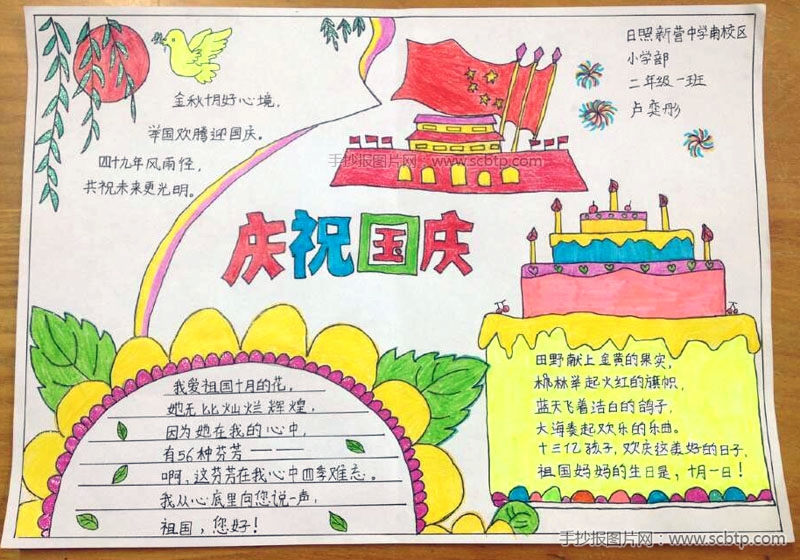 金秋十月好心境，
举国欢腾迎国庆。
四十九年风雨径，
共祝未来更光明。
日照新营中学南校区
小学部
二年级一班
卢奕彤
手抄报图片网：www.scbtp.com
庆祝国庆
我爱祖国十月的花，
她无比灿烂辉煌，
因为她在我的心中，
有56种芬芳——
啊，这芬芳在我心中四季难忘。
我从心底里向您说一声，
祖国，您好！
田野献上金黄的果实，
枫林举起火红的旗帜，
蓝天飞着洁白的鸽子，
大海奏起欢乐的乐曲。
十三亿孩子，欢庆这美好的日子，
祖国妈妈的生日是，十月一日！
手抄报图片网：www.scbtp.com